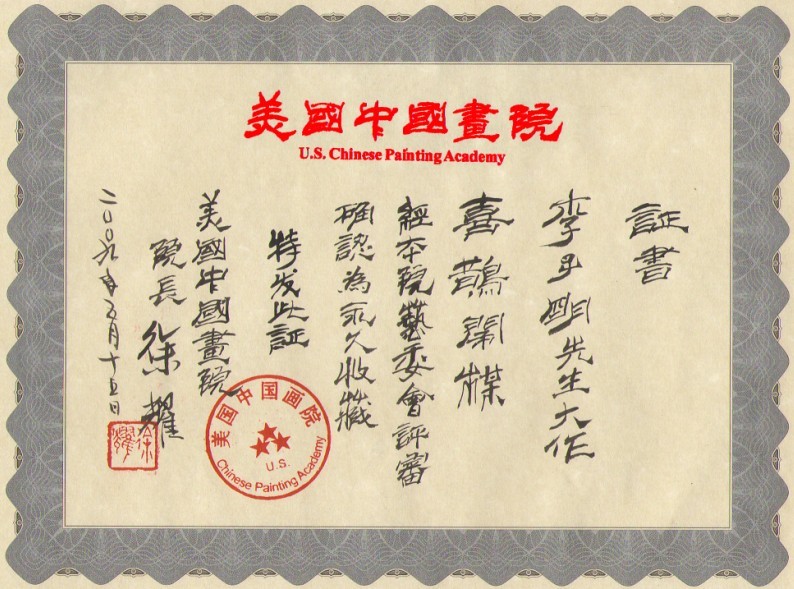 美國中國畫院
U.S. Chinese Painting Academy
証書
李子明先生大作
喜鵲鬧楳
經本院藝委會評審
確認為永久收藏
特发此証
美國中國畫院
院長 徐耀
二〇〇九年五月十五日
美国中国画院
U.S.
Chinese Painting Academy
徐耀